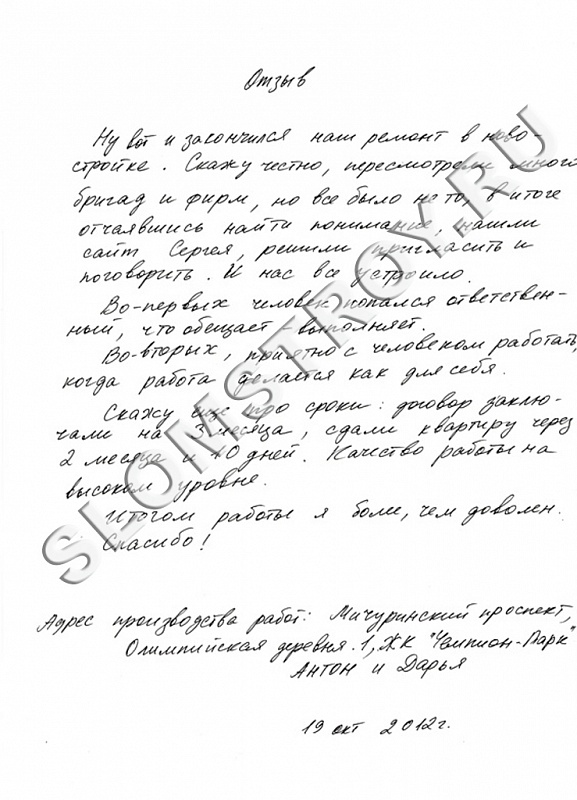 Отзыв
Ну вот и закончился наш ремонт в ново-
стройке. Скажу честно, пересмотрели много
бригад и фирм, но все было не то, в итоге
отчаявшись найти понимание, нашли
сайт Сергея, решили пригласить и
поговорить. И нас все устроило.
Во-первых человек попался ответствен-
ный, что обещает - выполняет.
Во-вторых, приятно с человеком работать,
когда работа делается как для себя.
Скажу еще про сроки: договор заклю-
чали на 3 месяца, сдали квартиру через
2 месяца и 10 дней. Качество работы на
высоком уровне.
Итогом работы я боли, чем доволен.
Спасибо!
Адрес производства работ: Мичуринский проспект,
Олимпийская деревня. 1, ЖК "Чемпион-Парк"
Антон и Дарья
19 окт 2012г.
SLOMSTROY.RU